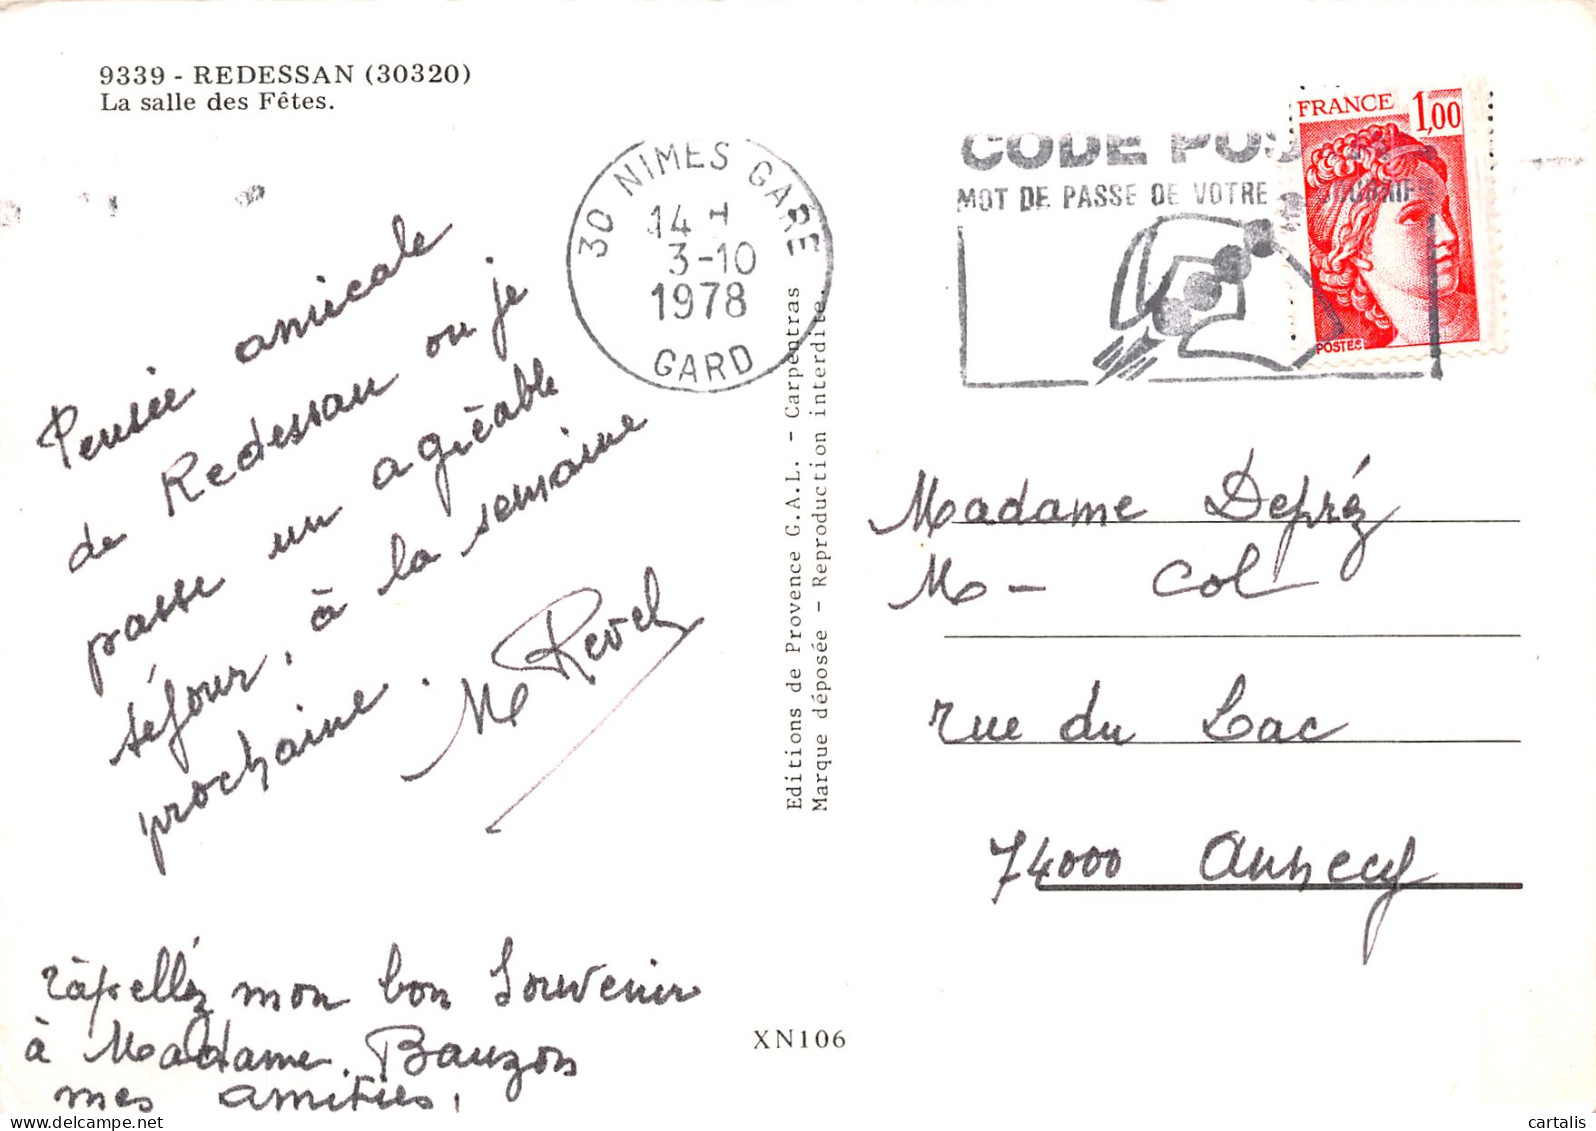 9339 - REDESSAN (30320)
La salle des Fêtes.
Pensée amicale
de Redessan ou je
passe un agréable
séjour, à la semaine
prochaine.
Me Revel
ràpelléz mon bon Souvenir
à Madame. Bauzon
mes amitiés,
30 NIMES GARE
14 H
3-10
1978
GARD
Editions de Provence G.A.L. - Carpentras
Marque déposée - Reproduction interdite.
XN106
CODE
MOT DE PASSE DE VOTRE
FRANCE 1,00
POSTES
Madame Depréz
M - Col
rue du Lac
74000 Annecy
delcampe.net
cartalis